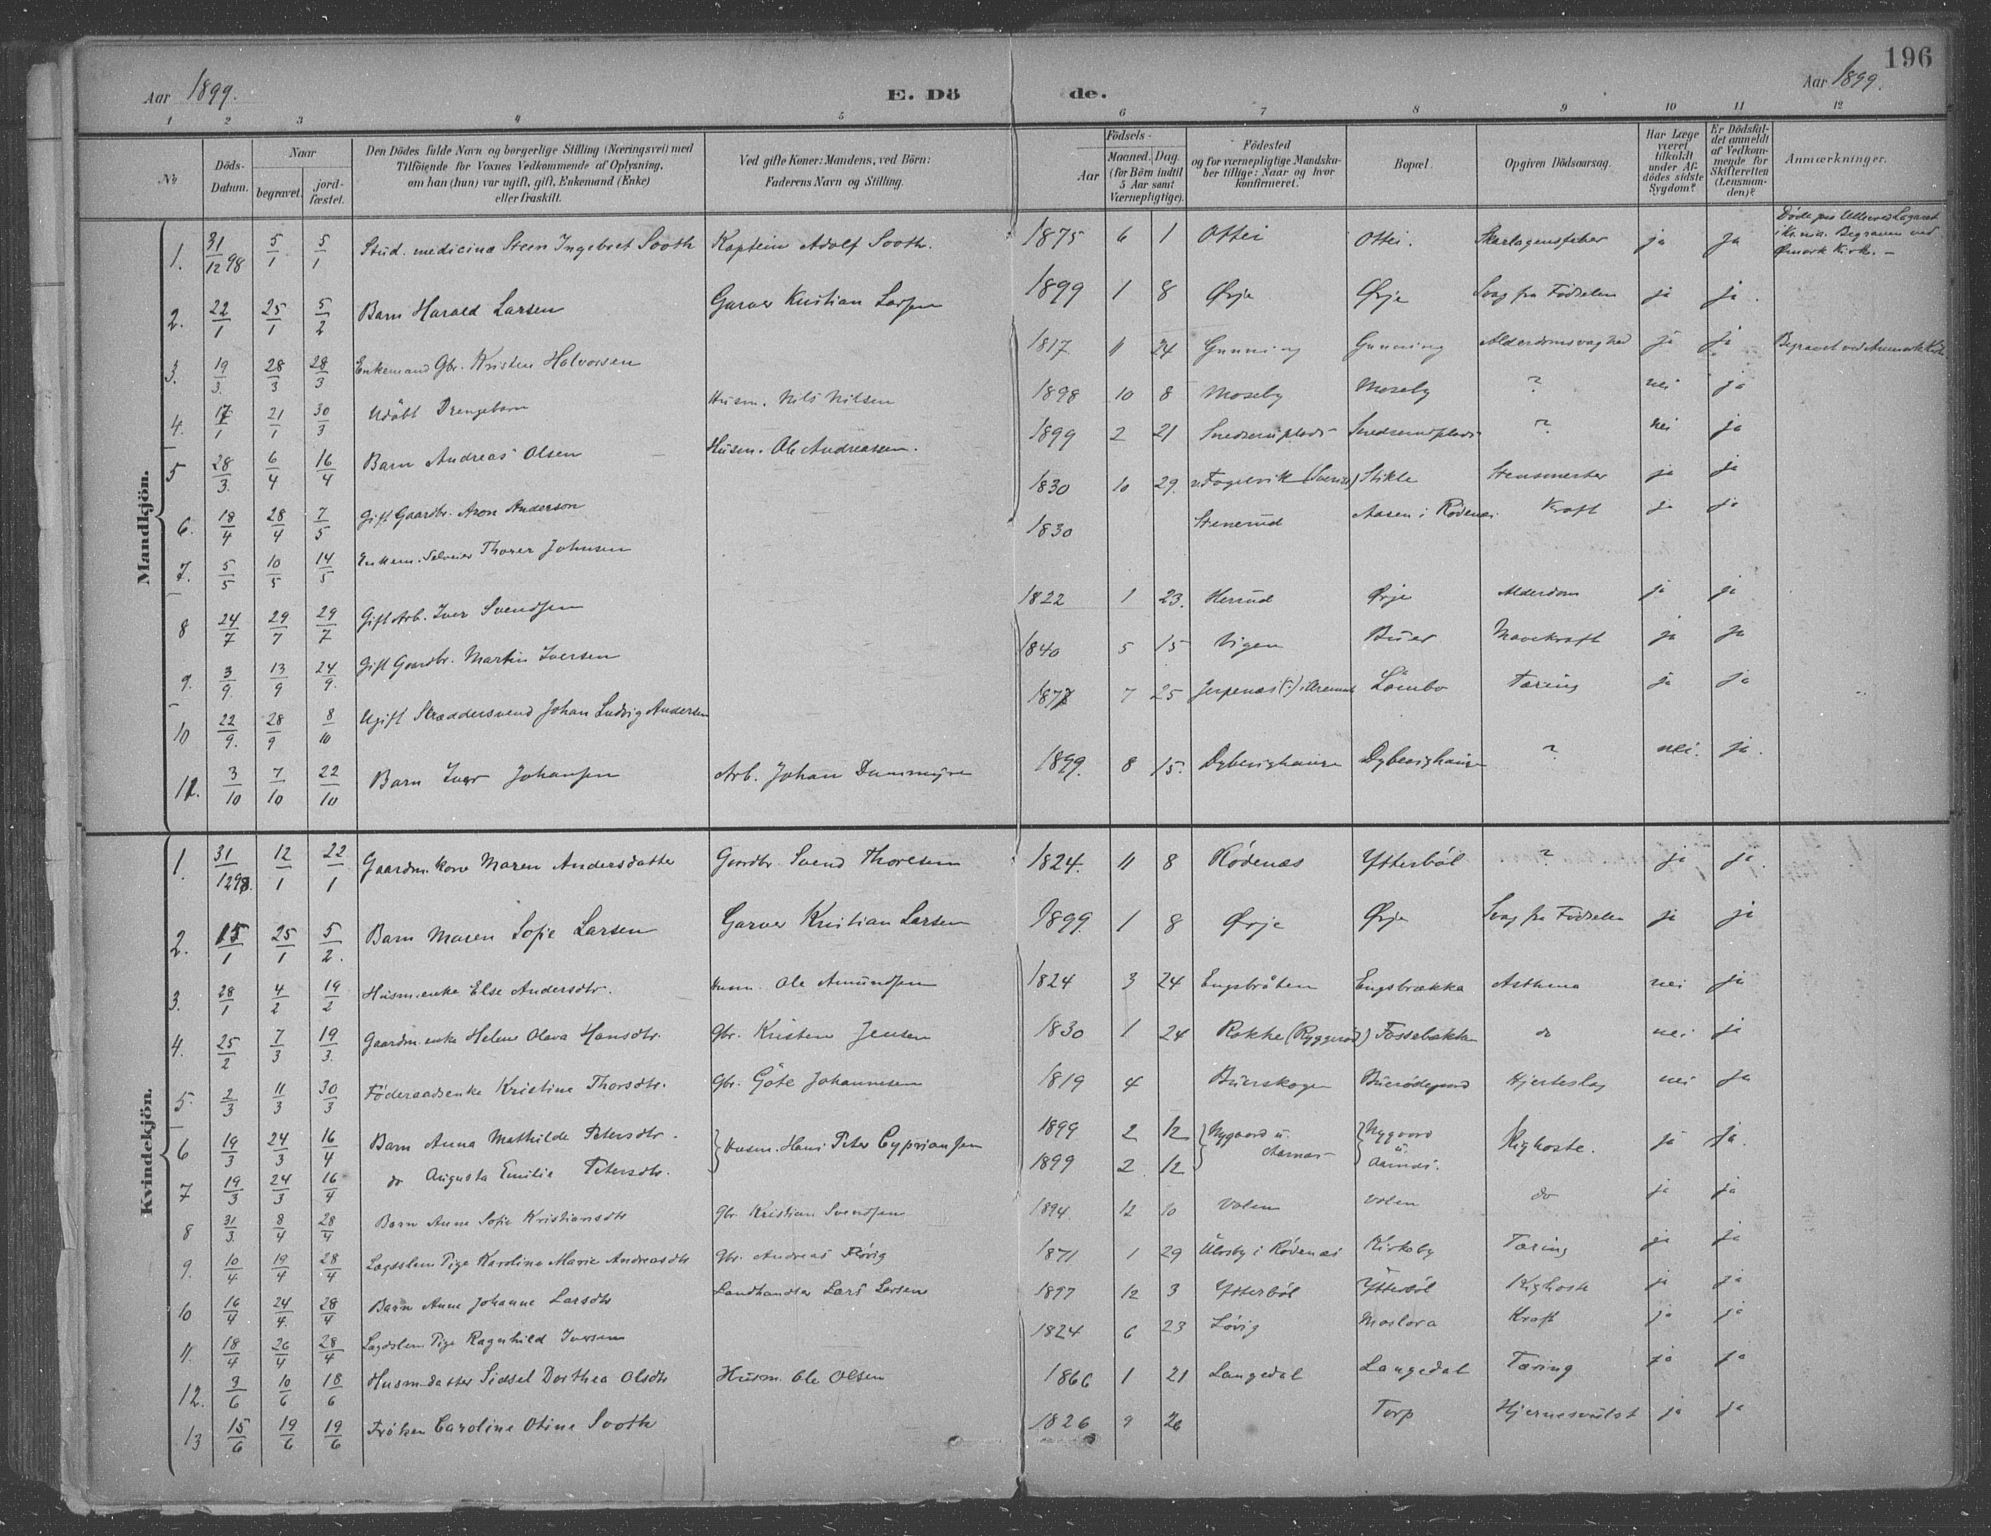 196
Aar 1899.
E. Dö de.
Aar 1899.
1 2 3 4 5 6 7 8 9 10 11 12
No
Döds-Datum.
Naar
begravet.
jord-fæstet.
Den Dödes fulde Navn og borgerlige Stilling (Næringsvei) med
Tilföiende for Voxnes Vedkommende af Oplysning,
om han (hun) var ugift, gift, Enkemand (Enke)
eller fraskilt.
Ved gifte Koner: Mandens, ved Börn:
Faderens Navn og Stilling.
Födsels-
Aar
Maaned. Dag.
(for Börn indtil 5 Aar samt Værnepligtige).
Födested
og for værnepligtige Mandskaber tillige: Naar og hvor konfirmeret.
Bopæl.
Opgiven Dödsaarsag.
Har Læge været tilkaldt under Afdödes sidste Sygdom?
Er Dödsfaldet anmeldt af Vedkommende for Skifteretten (Lensmanden)?
Anmærkninger.
Mandkjön.
1. 31/12 98 5/1 5/1 Stud. medicina Steen Ingebret Sooth Kaptein Adolf Sooth. 1875 6 1 Ottei Ottei. Skarlagensfeber ja ja
2. 22/1 25/1 5/2 Barn Harald Larsen Garver Kristian Larsen 1899 1 8 Ørje Ørje Svag fra Födselen ja ja.
3. 19/3. 28/3 28/3 Enkemand Gbr. Kristen Halvorsen 1817. 11 24 Gunning Gunning Alderdomsvaghed ja ja
4. 17/1 21/1 30/3 Udöbt Drengebarn Husm. Nils Nilsen 1898 10 8 Moseby Moseby ? nei ja
5 28/3. 6/4 16/4 Barn Andreas Olsen Husm. Ole Andreassen. 1899 2 21 ? nei ja
6. 18/4 28/4 7/5 Gift Gaardbr. Aron Anderson 1830 10 29. Stikle ja ja
7. 5/5 10/5 14/5 Enkem. Thorer Johnsen 1830 Stenerud Aasen i Rödenæs Kræft ja ja
8 24/7 29/7 29/7 Gift Arb. Iver Svendsen 1822 1 23. Herrud Ørje Alderdom ja ja
9. 3/9. 13/9 24/9. Gift Gaardbr. Martin Iversen 1840 5 15 Vigen Buer Mavekræft ja ja
10 22/9. 28/9 8/10 Ugift Skræddersvend Johan Ludvig Andersen 1877 7 25 Tæring ja ja
11. 3/10 7/10 22/10 Barn Johansen Arb. Johan 1899. 8 15. ? nei. ja.
Kvindekjön.
1. 31/12 98. 12/1 22/1 Gaardm. kone Maren Andersdatter Gaardbr. Svend Thoresen 1824. 11 8 Rödenæs Ytterböl ? ja ja.
2. 15/1 25/1 5/2. Barn Maren Sofie Larsen Garver Kristian Larsen 1899. 1 8 Ørje Ørje Svag fra Födselen ja ja
3. 28/1 4/2 19/2 Husm.enke Else Andersdtr. Husm. Ole Amundsen 1824 3 24 Engsbråten Engsbrækka Asthma nei ja
4. 25/2 7/3 19/3. Gaardm. enke Helene Olava Hansdtr. Gbr. Kristen Jensen 1830 1 24 Rakke do nei ja
5. 2/3 11/3 30/3 Föderaadsenke Kristine Thorsdtr. Gbr. Göte Johannesen 1819 4 Buerskogen Hjerteslag nei ja
6 19/3 24/3 16/4 Barn Anna Mathilde Petersdtr. Husm. Hans Peter Cypriansen 1899 2 12 Nygaard u. Aarnæs Nygaard u. Aarnæs. Kighoste. ja ja.
7 19/3 24/3 16/4 do Augusta Emilie Petersdtr. 1899 2. 12
8 31/3. 8/4 28/4 Barn Anne Sofie Kristiansdtr Gbr. Kristian Svendsen 1894. 12 10 Volen Volen do ja ja
9. 10/4 19/4 28/4 Lægdslem Pige Karoline Marie Andreasdtr Gbr. Andreas 1871 1 29 Ulvsby i Rödenæs Kirkeby Tæring ja ja
10 16/4 24/4. 28/4 Barn Anne Johanne Larsdtr Landhandler Lars Larsen 1897 12 3 Ytterböl Ytterböl Kighoste ja ja
11. 18/4 26/4 28/4 Lægdslem Pige Ragnhild Iversen 1824 6 23 Lövig Kræft ja ja
12. 3/6 10/6 18/6 Husm.datter Sidsel Dorthea Olsdtr Husm. Ole Olsen 1866 1 21 Langedal Langedal Tæring ja ja
13 15/6 19/6 19/6 Fröken Caroline Otine Sooth 1826 9 26 Torp Hjernesvulst ja ja